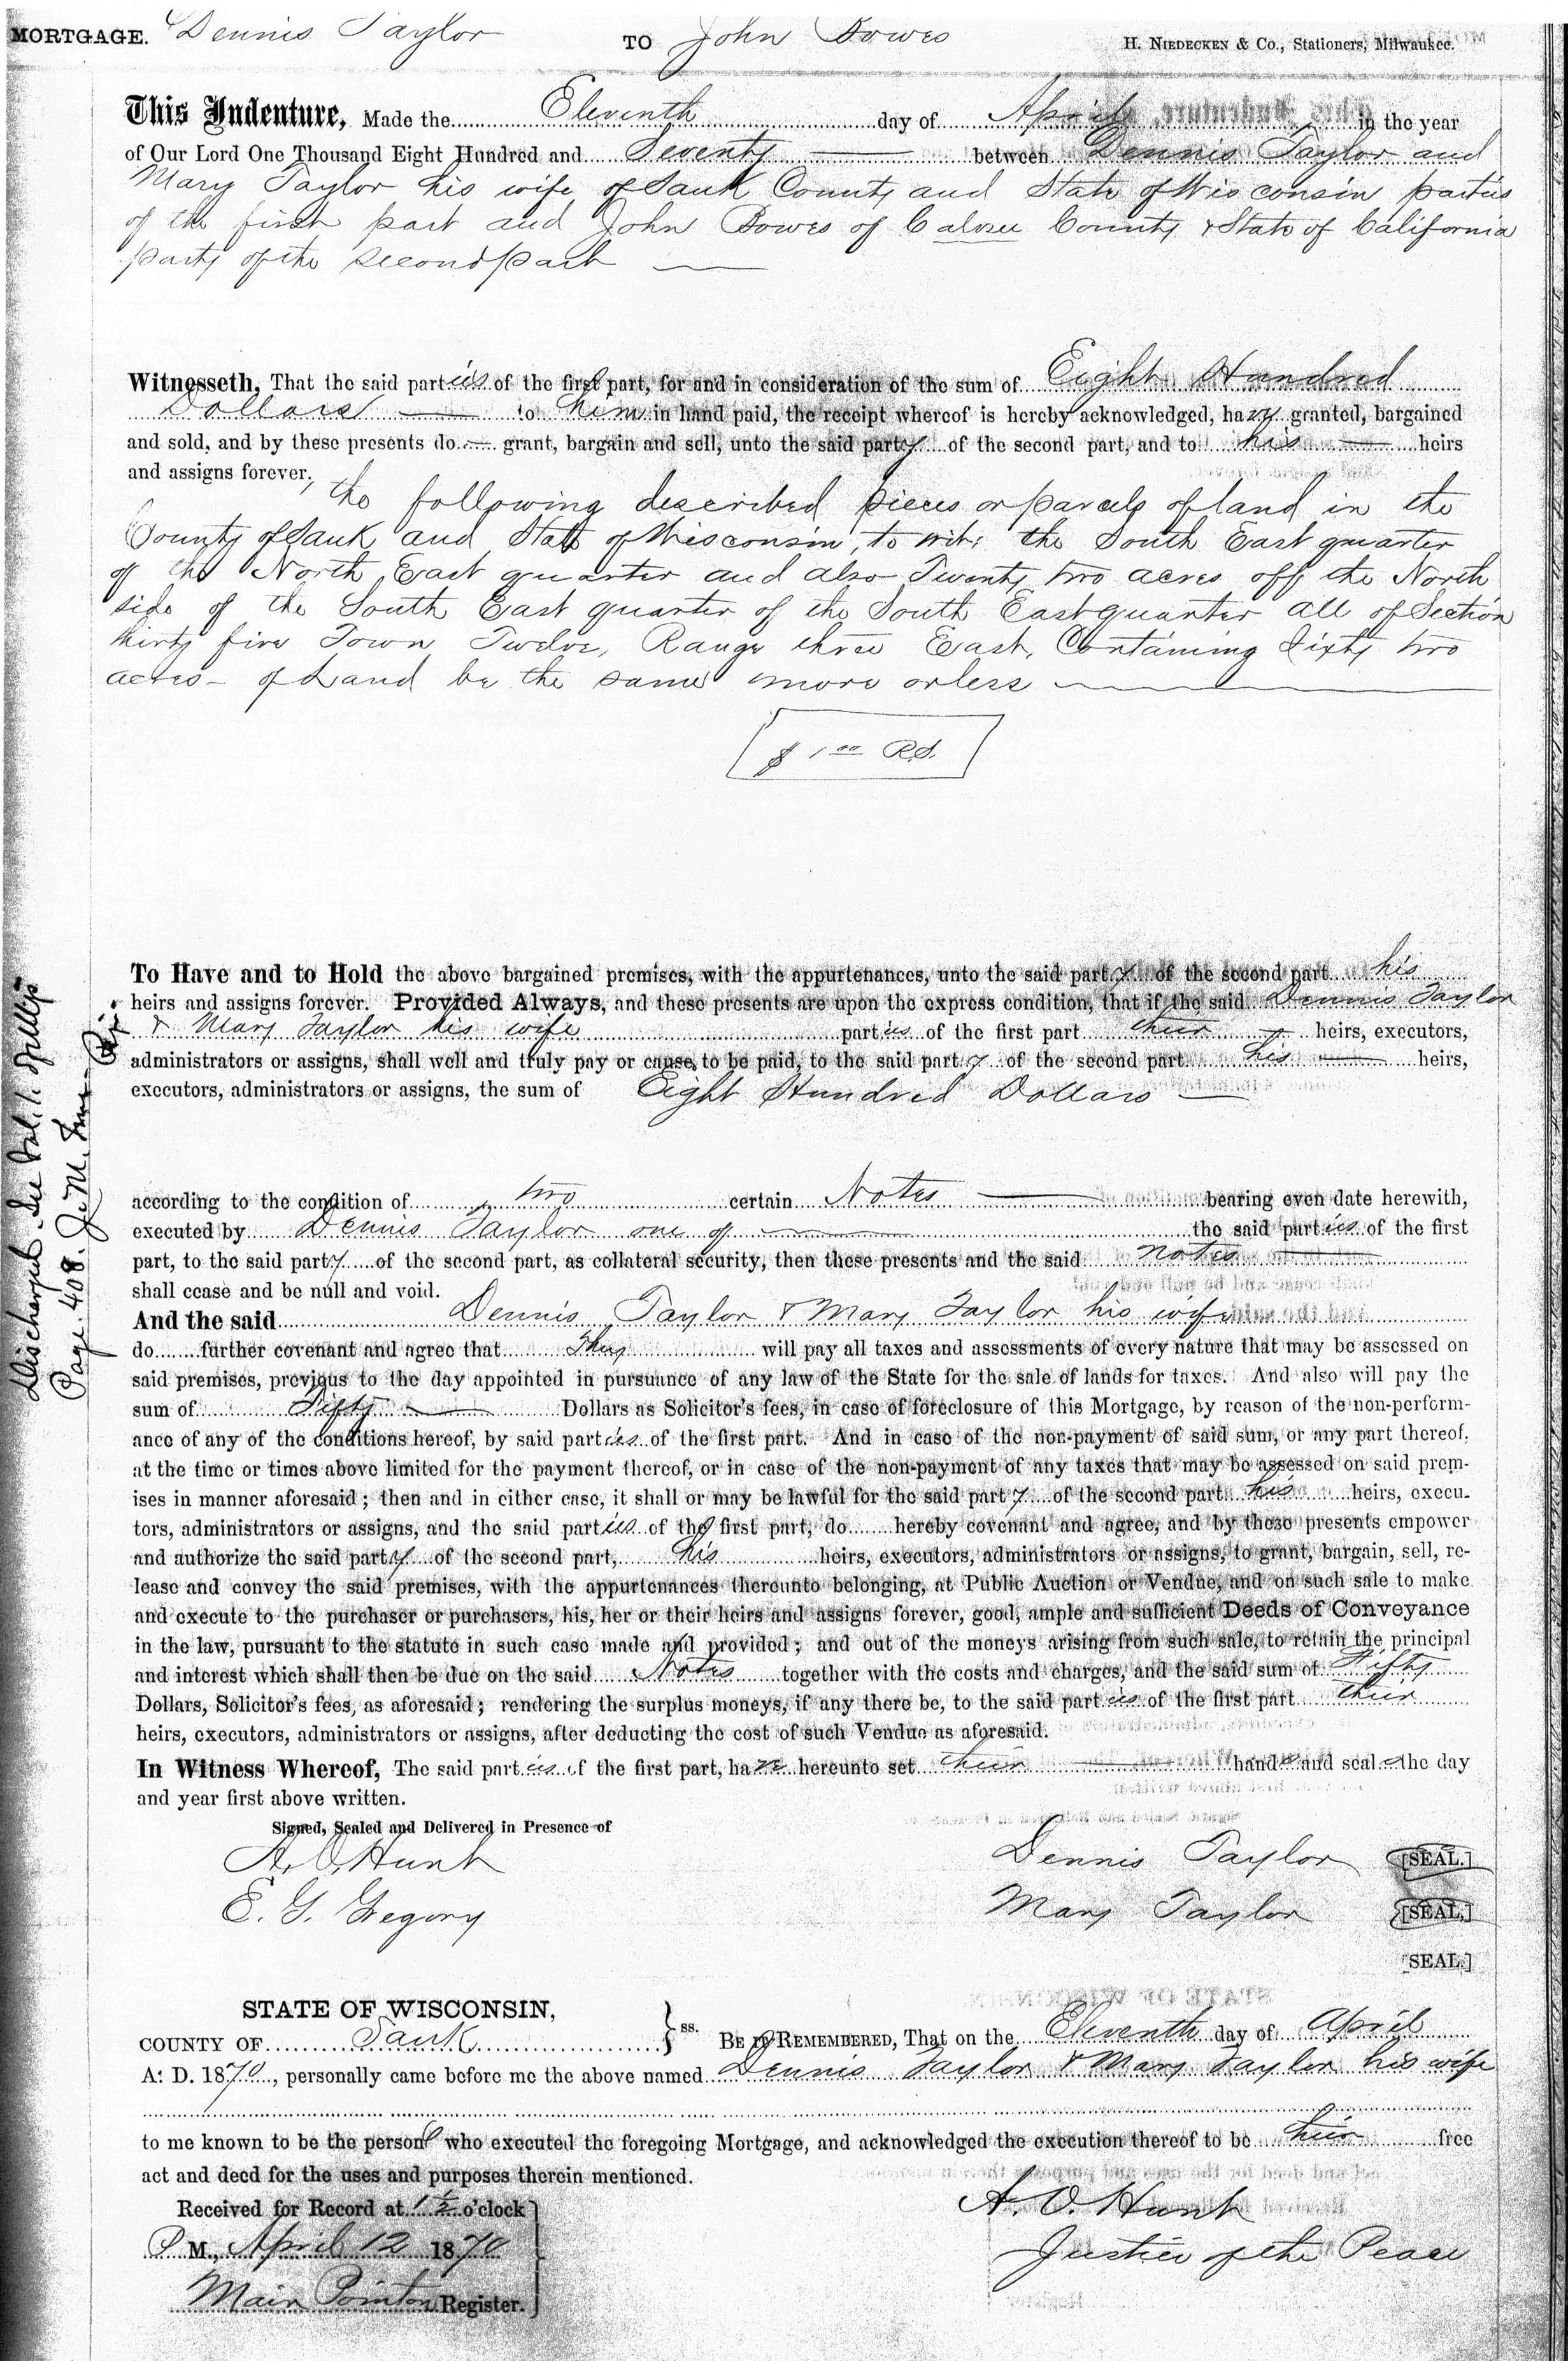 MORTGAGE. Dennis Taylor TO John Bowes H. NIEDECKEN & Co., Stationers, Milwaukee.
This Indenture, Made the Eleventh day of April in the year
of Our Lord One Thousand Eight Hundred and Seventy between Dennis Taylor and
Mary Taylor his wife of Sauk County and State of Wisconsin parties
of the first part and John Bowes of County & State of California
party of the second part
Witnesseth, That the said parties of the first part, for and in consideration of the sum of Eight Hundred
Dollars to him in hand paid, the receipt whereof is hereby acknowledged, have granted, bargained
and sold, and by these presents do grant, bargain and sell, unto the said party of the second part, and to his heirs
and assigns forever, the following described pieces or parcels of land in the
County of Sauk and State of Wisconsin, to wit: the South East quarter
of the North East quarter and also Twenty two acres off the North
side of the South East quarter of the South East quarter all of Section
thirty five Town Twelve, Range three East, Containing Sixty two
acres of Land be the same more or less
$1.00 R.S.
To Have and to Hold the above bargained premises, with the appurtenances, unto the said party of the second part his
heirs and assigns forever. Provided Always, and these presents are upon the express condition, that if the said Dennis Taylor
& Mary Taylor his wife parties of the first part their heirs, executors,
administrators or assigns, shall well and truly pay or cause to be paid, to the said party of the second part his heirs,
executors, administrators or assigns, the sum of Eight Hundred Dollars
according to the condition of two certain Notes bearing even date herewith,
executed by Dennis Taylor one of the said parties of the first
part, to the said party of the second part, as collateral security, then these presents and the said notes
shall cease and be null and void.
And the said Dennis Taylor & Mary Taylor his wife
do further covenant and agree that They will pay all taxes and assessments of every nature that may be assessed on
said premises, previous to the day appointed in pursuance of any law of the State for the sale of lands for taxes. And also will pay the
sum of Fifty Dollars as Solicitor's fees, in case of foreclosure of this Mortgage, by reason of the non-perform-
ance of any of the conditions hereof, by said parties of the first part. And in case of the non-payment of said sum, or any part thereof,
at the time or times above limited for the payment thereof, or in case of the non-payment of any taxes that may be assessed on said prem-
ises in manner aforesaid; then and in either case, it shall or may be lawful for the said party of the second part his heirs, execu-
tors, administrators or assigns, and the said parties of the first part, do hereby covenant and agree, and by these presents empower
and authorize the said party of the second part, his heirs, executors, administrators or assigns, to grant, bargain, sell, re-
lease and convey the said premises, with the appurtenances thereunto belonging, at Public Auction or Vendue, and on such sale to make
and execute to the purchaser or purchasers, his, her or their heirs and assigns forever, good, ample and sufficient Deeds of Conveyance
in the law, pursuant to the statute in such case made and provided; and out of the moneys arising from such sale, to retain the principal
and interest which shall then be due on the said Notes together with the costs and charges, and the said sum of Fifty
Dollars, Solicitor's fees, as aforesaid; rendering the surplus moneys, if any there be, to the said parties of the first part their
heirs, executors, administrators or assigns, after deducting the cost of such Vendue as aforesaid.
In Witness Whereof, The said parties of the first part, have hereunto set their hands and seals the day
and year first above written.
Signed, Sealed and Delivered in Presence of
A. O. Hunt Dennis Taylor [SEAL.]
E. G. Gregory Mary Taylor [SEAL.]
[SEAL.]
STATE OF WISCONSIN,
COUNTY OF Sauk } ss. BE IT REMEMBERED, That on the Eleventh day of April
A. D. 1870, personally came before me the above named Dennis Taylor & Mary Taylor his wife
to me known to be the persons who executed the foregoing Mortgage, and acknowledged the execution thereof to be their free
act and deed for the uses and purposes therein mentioned.
Received for Record at 1 1/2 o'clock A. O. Hunt
P M., April 12 1870 Justice of the Peace
Main Pointon Register.
Page 408. J. M.